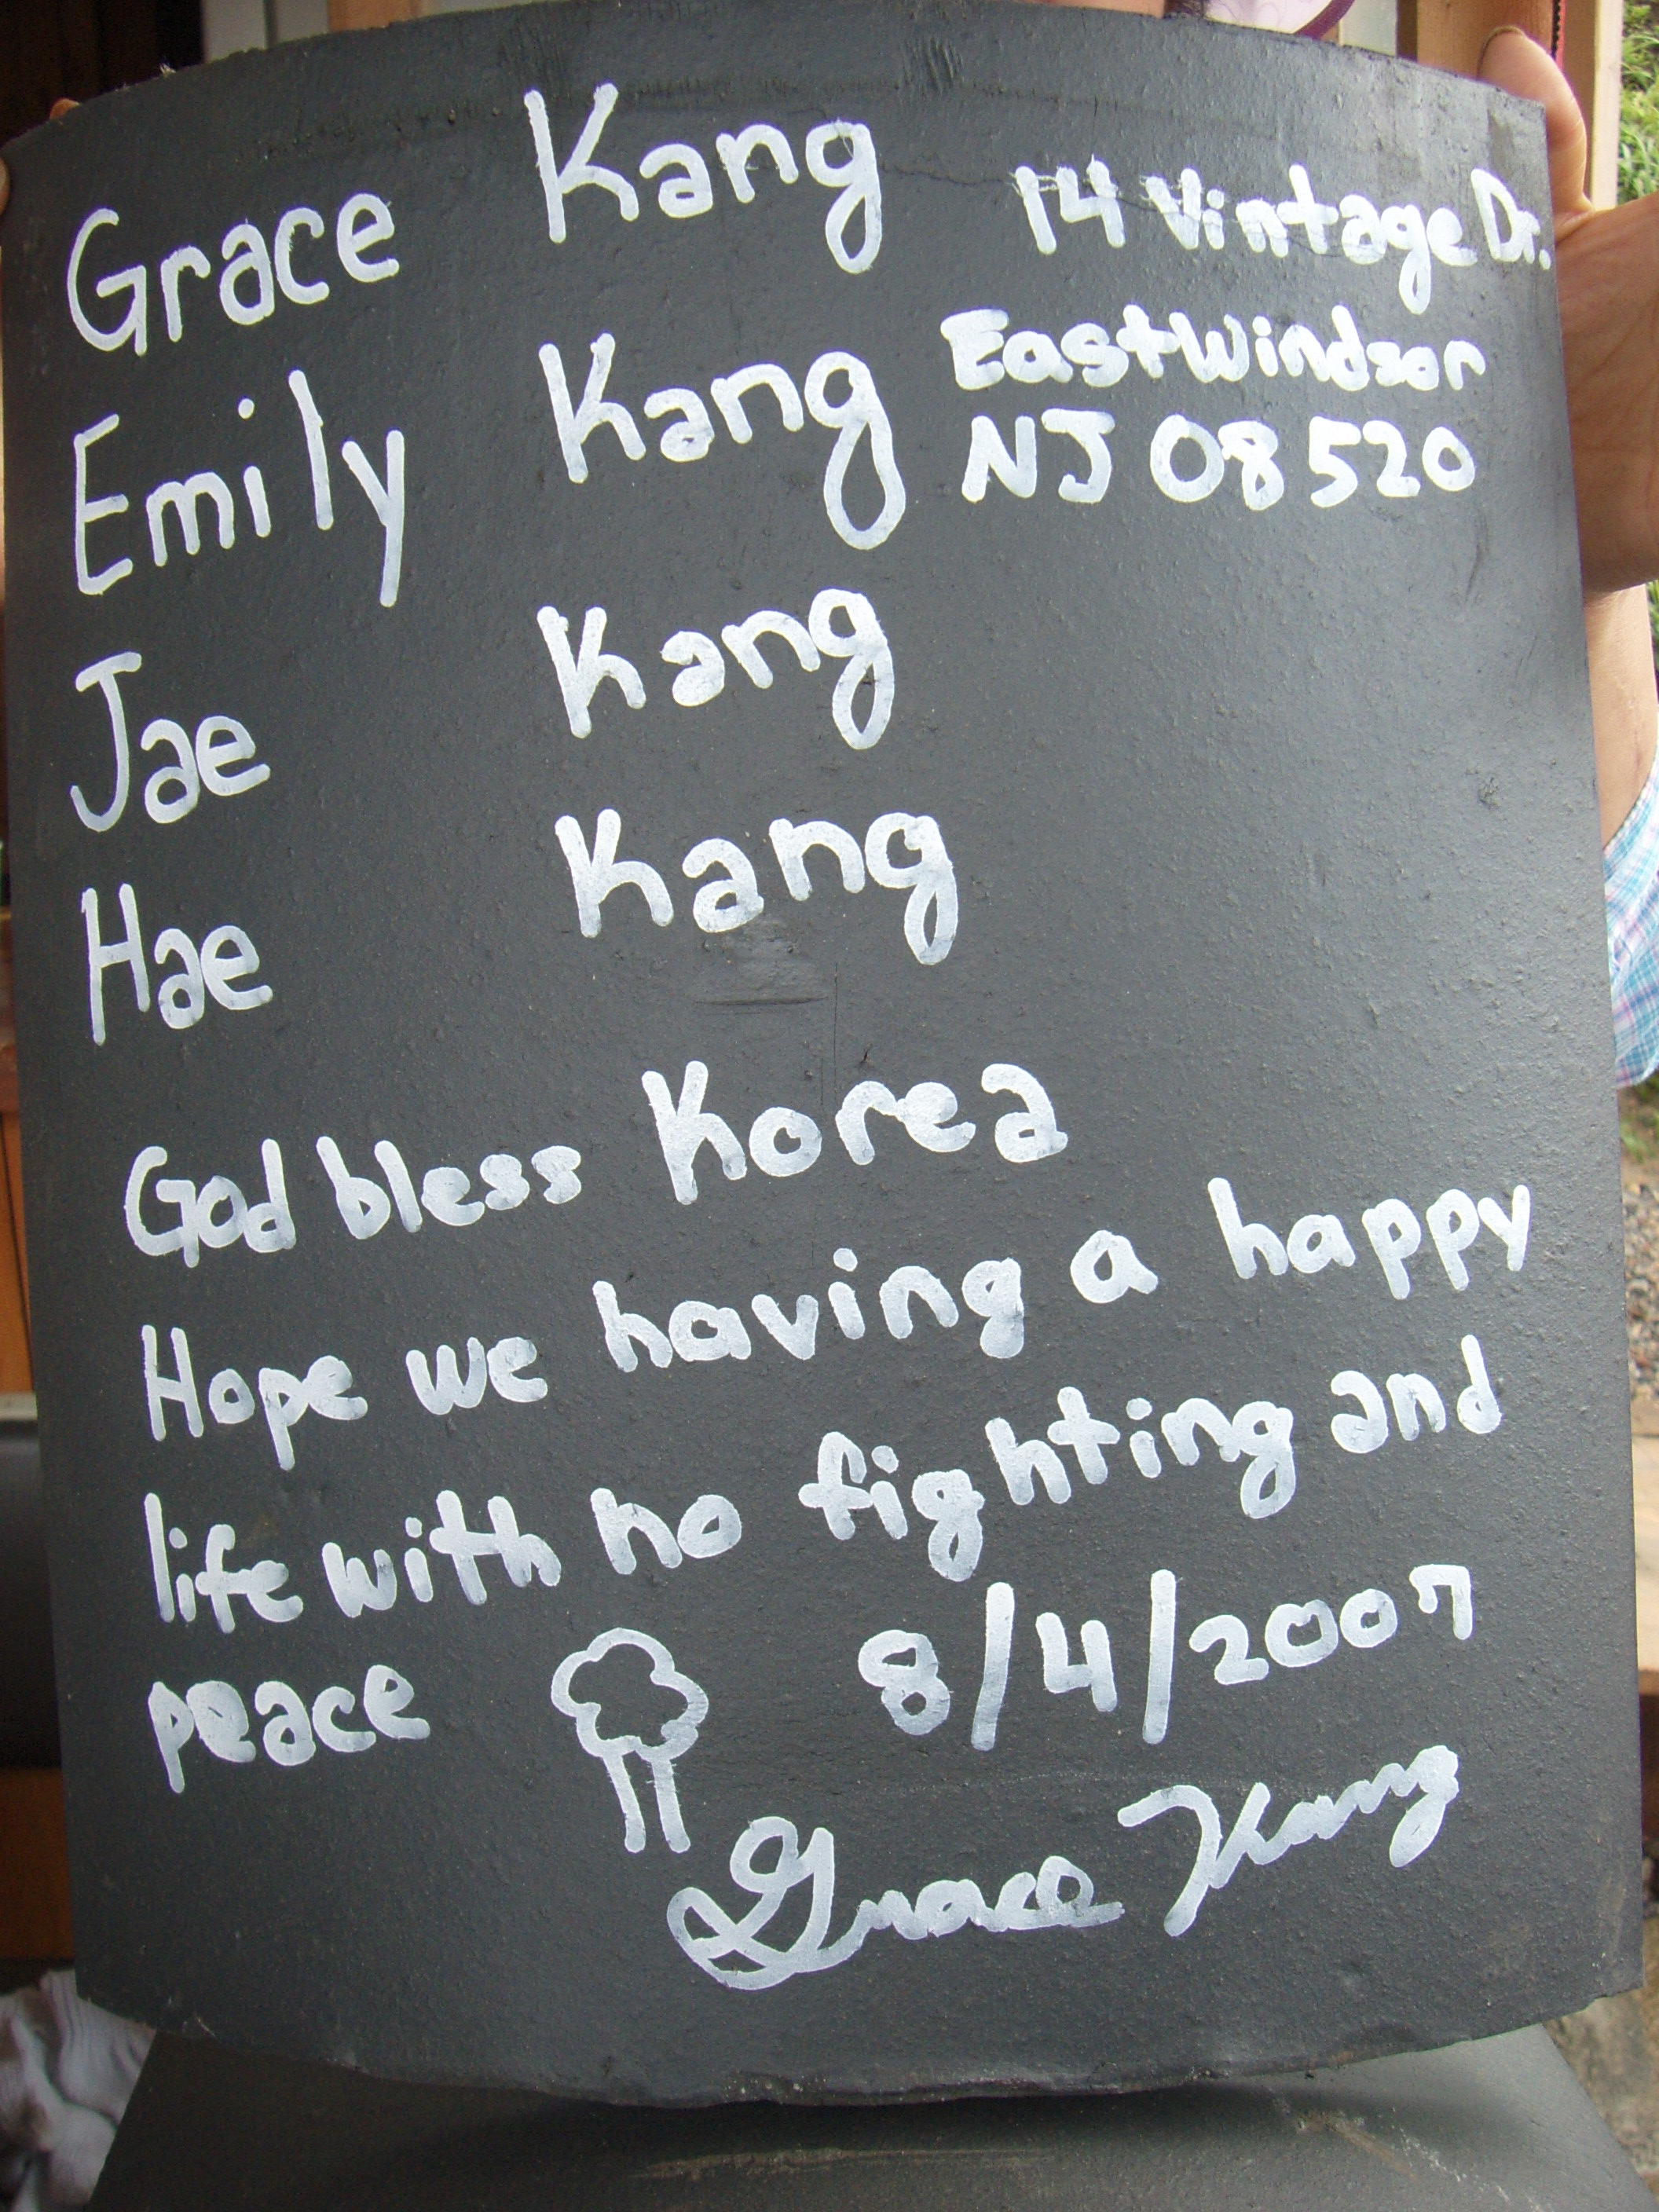 Grace Kang 14 Vintage Dr.
Emily Kang East Windsor
NJ 08520
Jae Kang
Hae Kang
God bless Korea
Hope we having a happy
life with no fighting and
peace 8/4/2007
Grace Kang